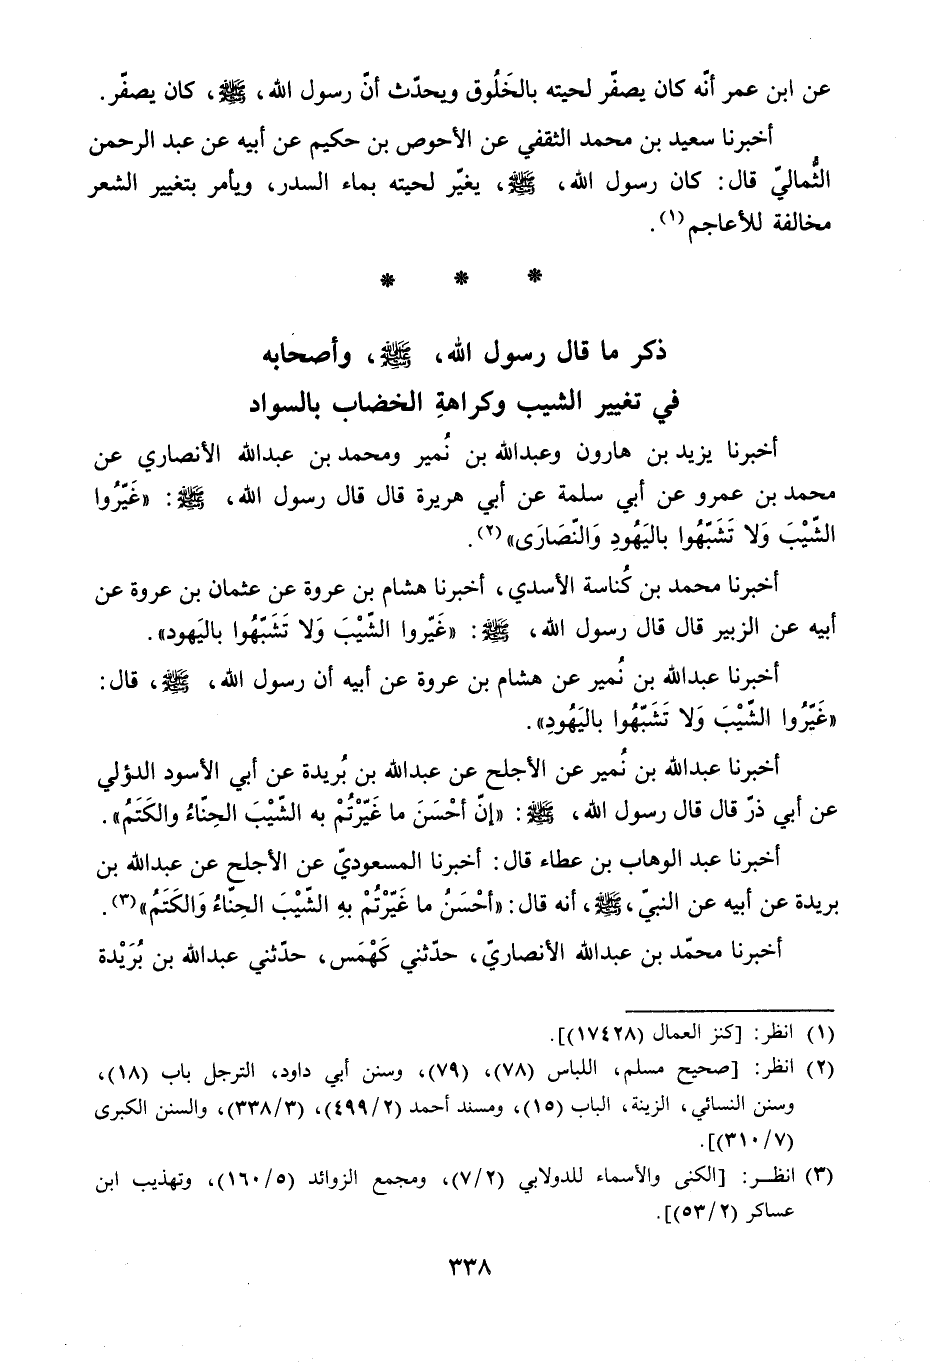 عن ابن عمر أنّه كان يصفّر لحيته بالخَلُوق ويحدّث أنّ رسول الله، ﷺ، كان يصفّر.
أخبرنا سعيد بن محمد الثقفي عن الأحوص بن حكيم عن أبيه عن عبد الرحمن
الثُّماليّ قال: كان رسول الله، ﷺ، يغيّر لحيته بماء السدر، ويأمر بتغيير الشعر
مخالفة للأعاجم(١).
* * *
ذكر ما قال رسول الله، ﷺ، وأصحابه
في تغيير الشيب وكراهةِ الخضاب بالسواد
أخبرنا يزيد بن هارون وعبدالله بن نُمير ومحمد بن عبدالله الأنصاري عن
محمد بن عمرو عن أبي سلمة عن أبي هريرة قال قال رسول الله، ﷺ: «غَيّرُوا
الشّيْبَ وَلا تَشَبّهُوا باليَهُودِ وَالنّصَارَى»(٢).
أخبرنا محمد بن كُناسة الأسدي، أخبرنا هشام بن عروة عن عثمان بن عروة عن
أبيه عن الزبير قال قال رسول الله، ﷺ: «غَيّروا الشّيْبَ وَلا تَشَبّهُوا باليَهود».
أخبرنا عبدالله بن نُمير عن هشام بن عروة عن أبيه أن رسول الله، ﷺ، قال:
«غَيّرُوا الشّيْبَ وَلا تَشَبّهُوا باليَهُودِ».
أخبرنا عبدالله بن نُمير عن الأجلح عن عبدالله بن بُريدة عن أبي الأسود الدؤلي
عن أبي ذرّ قال قال رسول الله، ﷺ: «إنّ أحْسَنَ ما غَيّرْتُمْ به الشّيْبَ الحِنّاءُ والكَتَمُ».
أخبرنا عبد الوهاب بن عطاء قال: أخبرنا المسعوديّ عن الأجلح عن عبدالله بن
بريدة عن أبيه عن النبيّ، ﷺ، أنه قال: «أحْسَنُ ما غَيّرْتُمْ بهِ الشّيْبَ الحِنّاءُ وَالكَتَمُ»(٣).
أخبرنا محمّد بن عبدالله الأنصاريّ، حدّثني كَهْمَس، حدّثني عبدالله بن بُرَيْدة
(١) انظر: [كنز العمال (١٧٤٢٨)].
(٢) انظر: [صحيح مسلم، اللباس (٧٨)، (٧٩)، وسنن أبي داود، الترجل باب (١٨)،
وسنن النسائي، الزينة، الباب (١٥)، ومسند أحمد (٤٩٩/٢)، (٣٣٨/٣)، والسنن الكبرى
(٣١٠/٧)].
(٣) انظـر: [الكنى والأسماء للدولابي (٧/٢)، ومجمع الزوائد (١٦٠/٥)، وتهذيب ابن
عساكر (٥٣/٢)].
٣٣٨